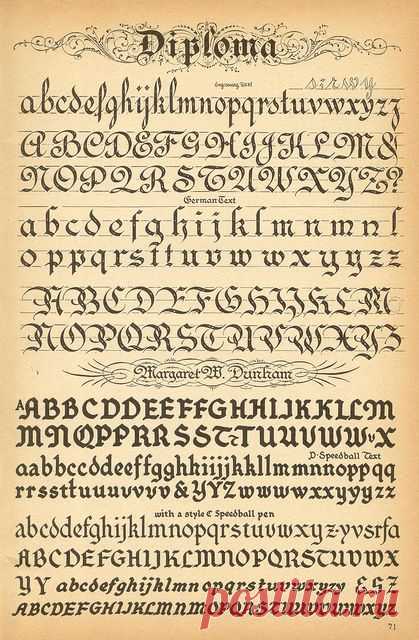 Diploma
Engrossing Text
abcdefghijklmnopqrstuvwxyzz
ABCDEFGHIJKLM&
NOPQRSTUVWXYZ?
German Text
abcdefghijklmn
opqrsttuvwwxyzz
ABCDEFGHIJKLM
NOPQRSTUVWXYZ
Margaret W. Dunham
AABBCDDEEFFGHHIJKKLLM
MNNQPPRRSSTTUUVWWVX
D-Speedball Text
aabbccddeffgghkiijjkkllmmnnoppqq
rrssttuuuvvv&YYZwwwwwxxyyyzz
with a style C Speedball pen
abcdefghijklmnopqrstuvwxyz-yvsrfa
ABCDEFGHIJKLMNOPQRSTUVWX
YY abcdefghijklmnopqrstuvwxyzy &SZ
ABCDEFGHIJKLMNOPQRSTUVWXYZ
71
postila.ru